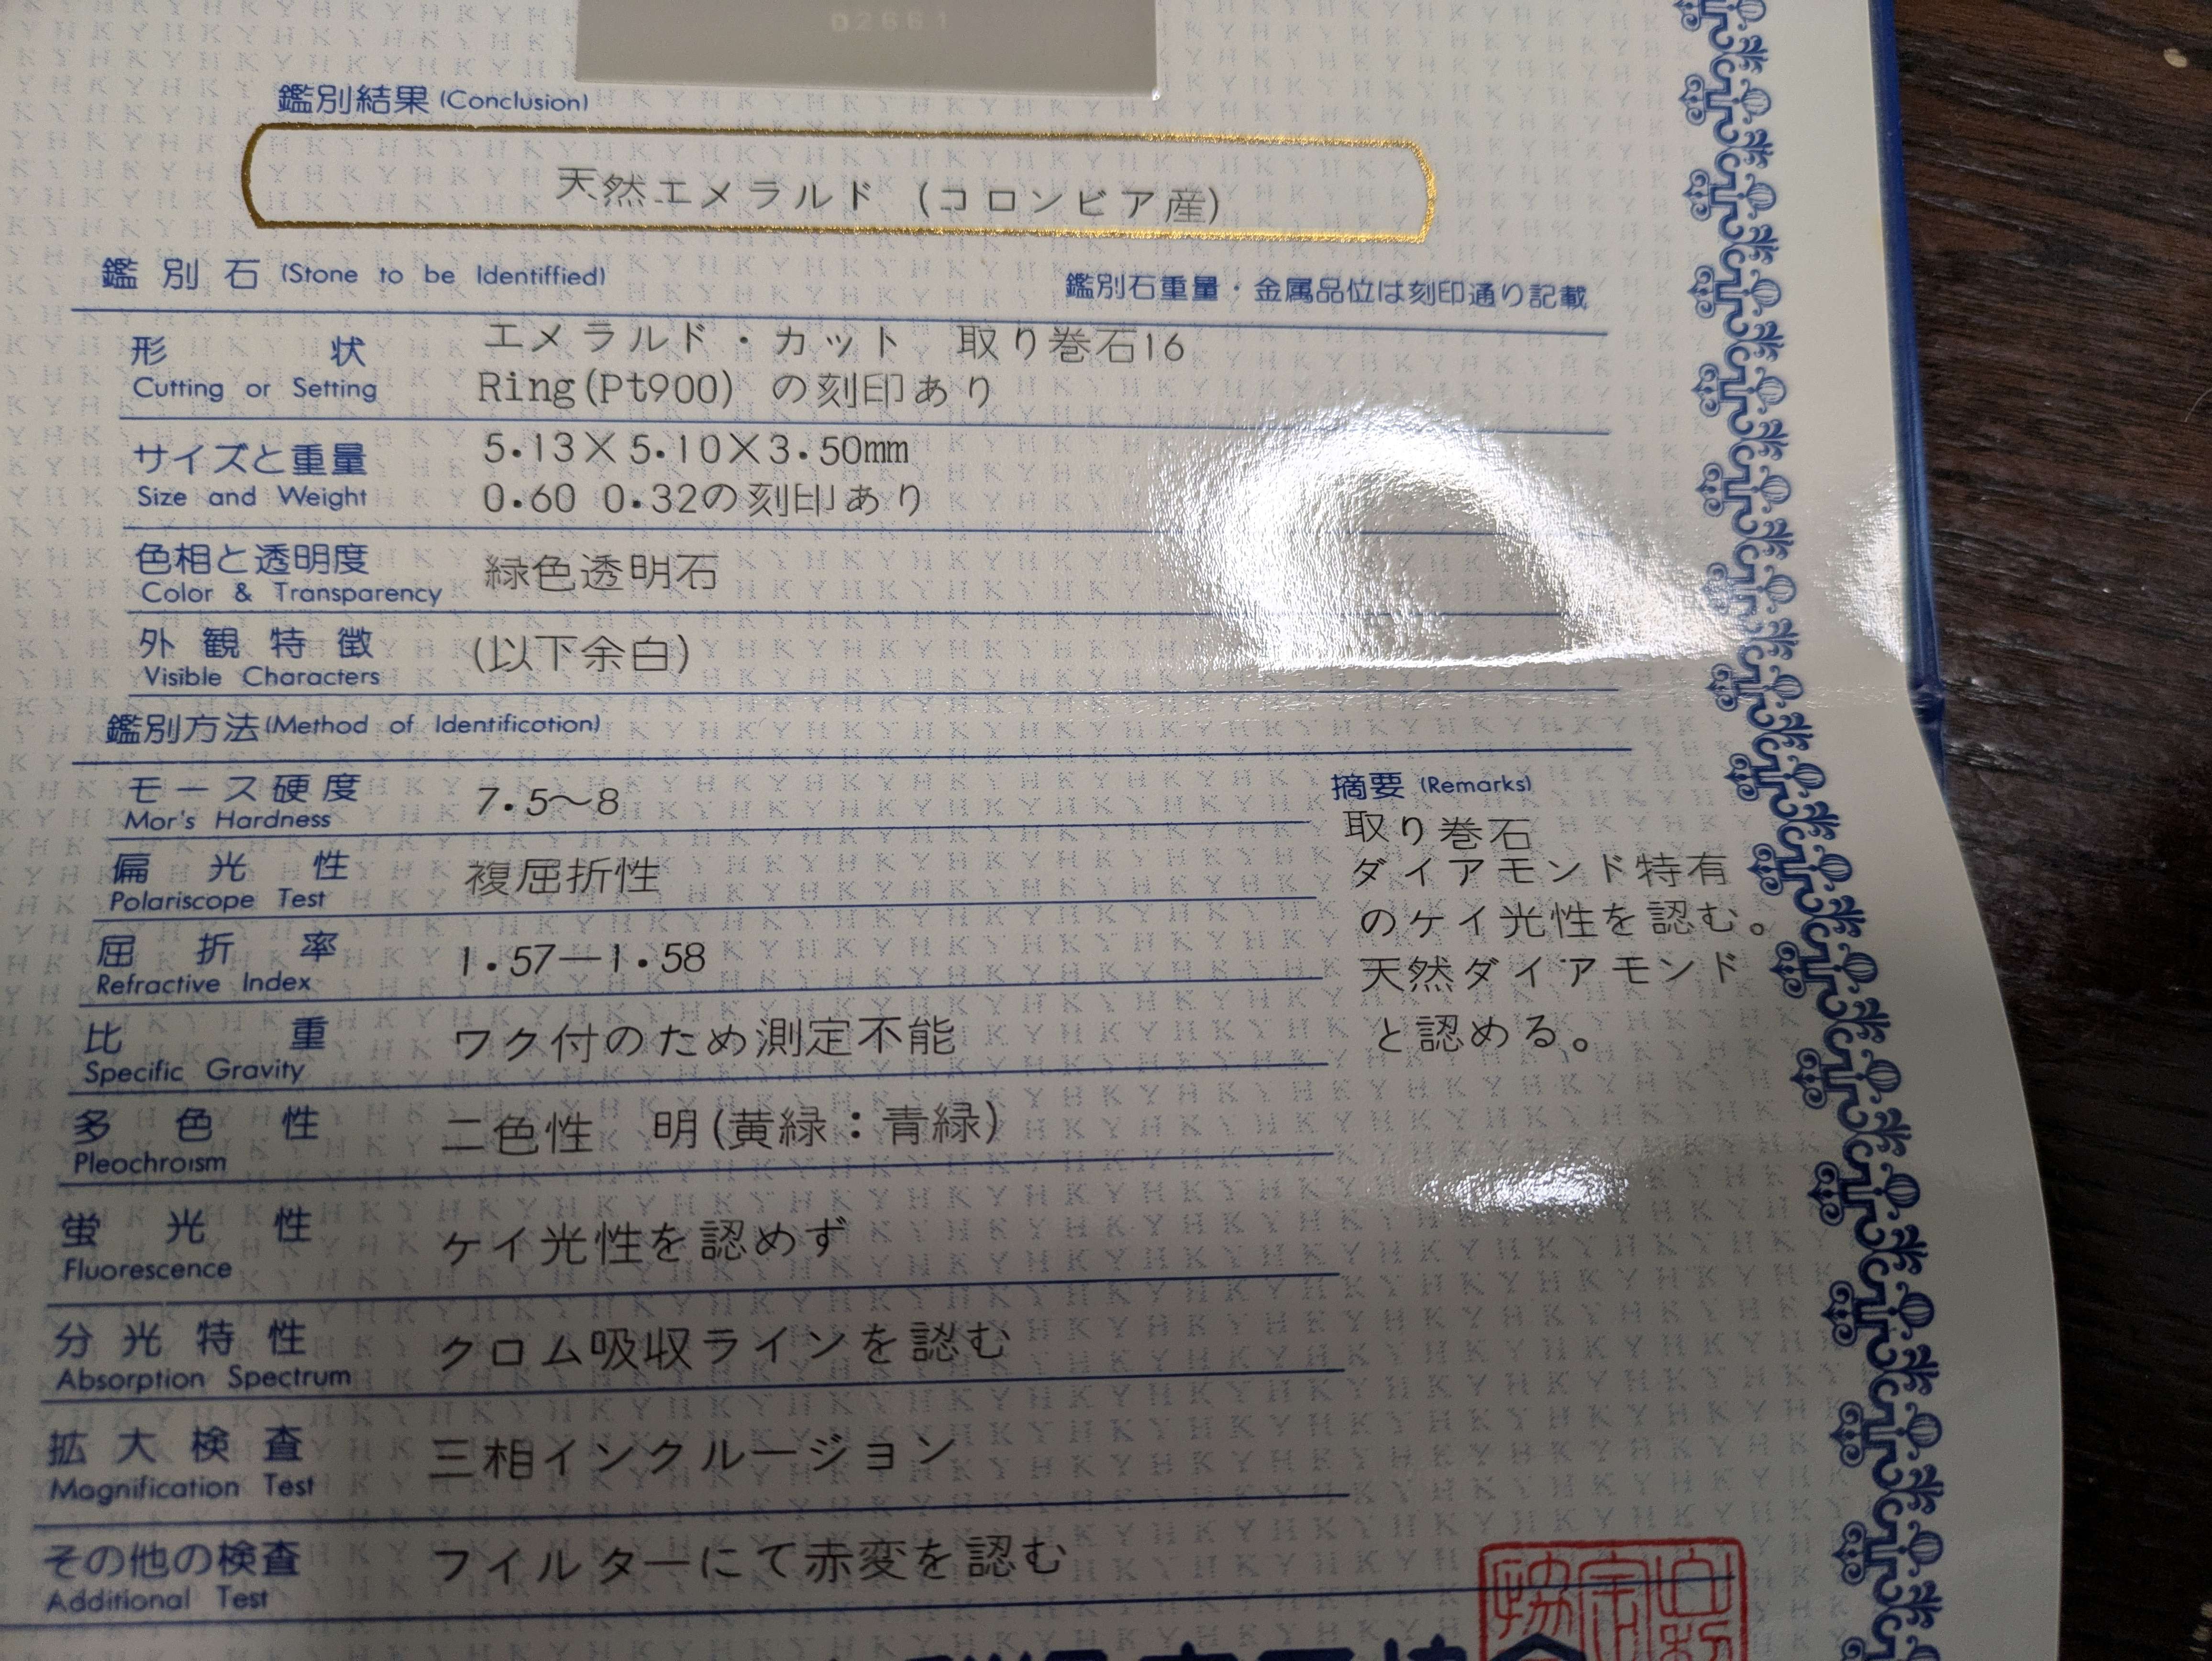 D2661
鑑別結果 (Conclusion)
天然エメラルド (コロンビア産)
鑑別石 (Stone to be Identiffied)
鑑別石重量・金属品位は刻印通り記載
形状 エメラルド・カット 取り巻石16
Cutting or Setting Ring(Pt900) の刻印あり
サイズと重量 5.13×5.10×3.50mm
Size and Weight 0.60 0.32の刻印あり
色相と透明度 緑色透明石
Color & Transparency
外観特徴 (以下余白)
Visible Characters
鑑別方法(Method of Identification)
モース硬度 7.5〜8
Mor's Hardness
偏光性 複屈折性
Polariscope Test
屈折率 1.57—1.58
Refractive Index
比重 ワク付のため測定不能
Specific Gravity
多色性 二色性 明(黄緑:青緑)
Pleochroism
蛍光性 ケイ光性を認めず
Fluorescence
分光特性 クロム吸収ラインを認む
Absorption Spectrum
拡大検査 三相インクルージョン
Magnification Test
その他の検査 フイルターにて赤変を認む
Additional Test
摘要 (Remarks)
取り巻石
ダイアモンド特有
のケイ光性を認む。
天然ダイアモンド
と認める。